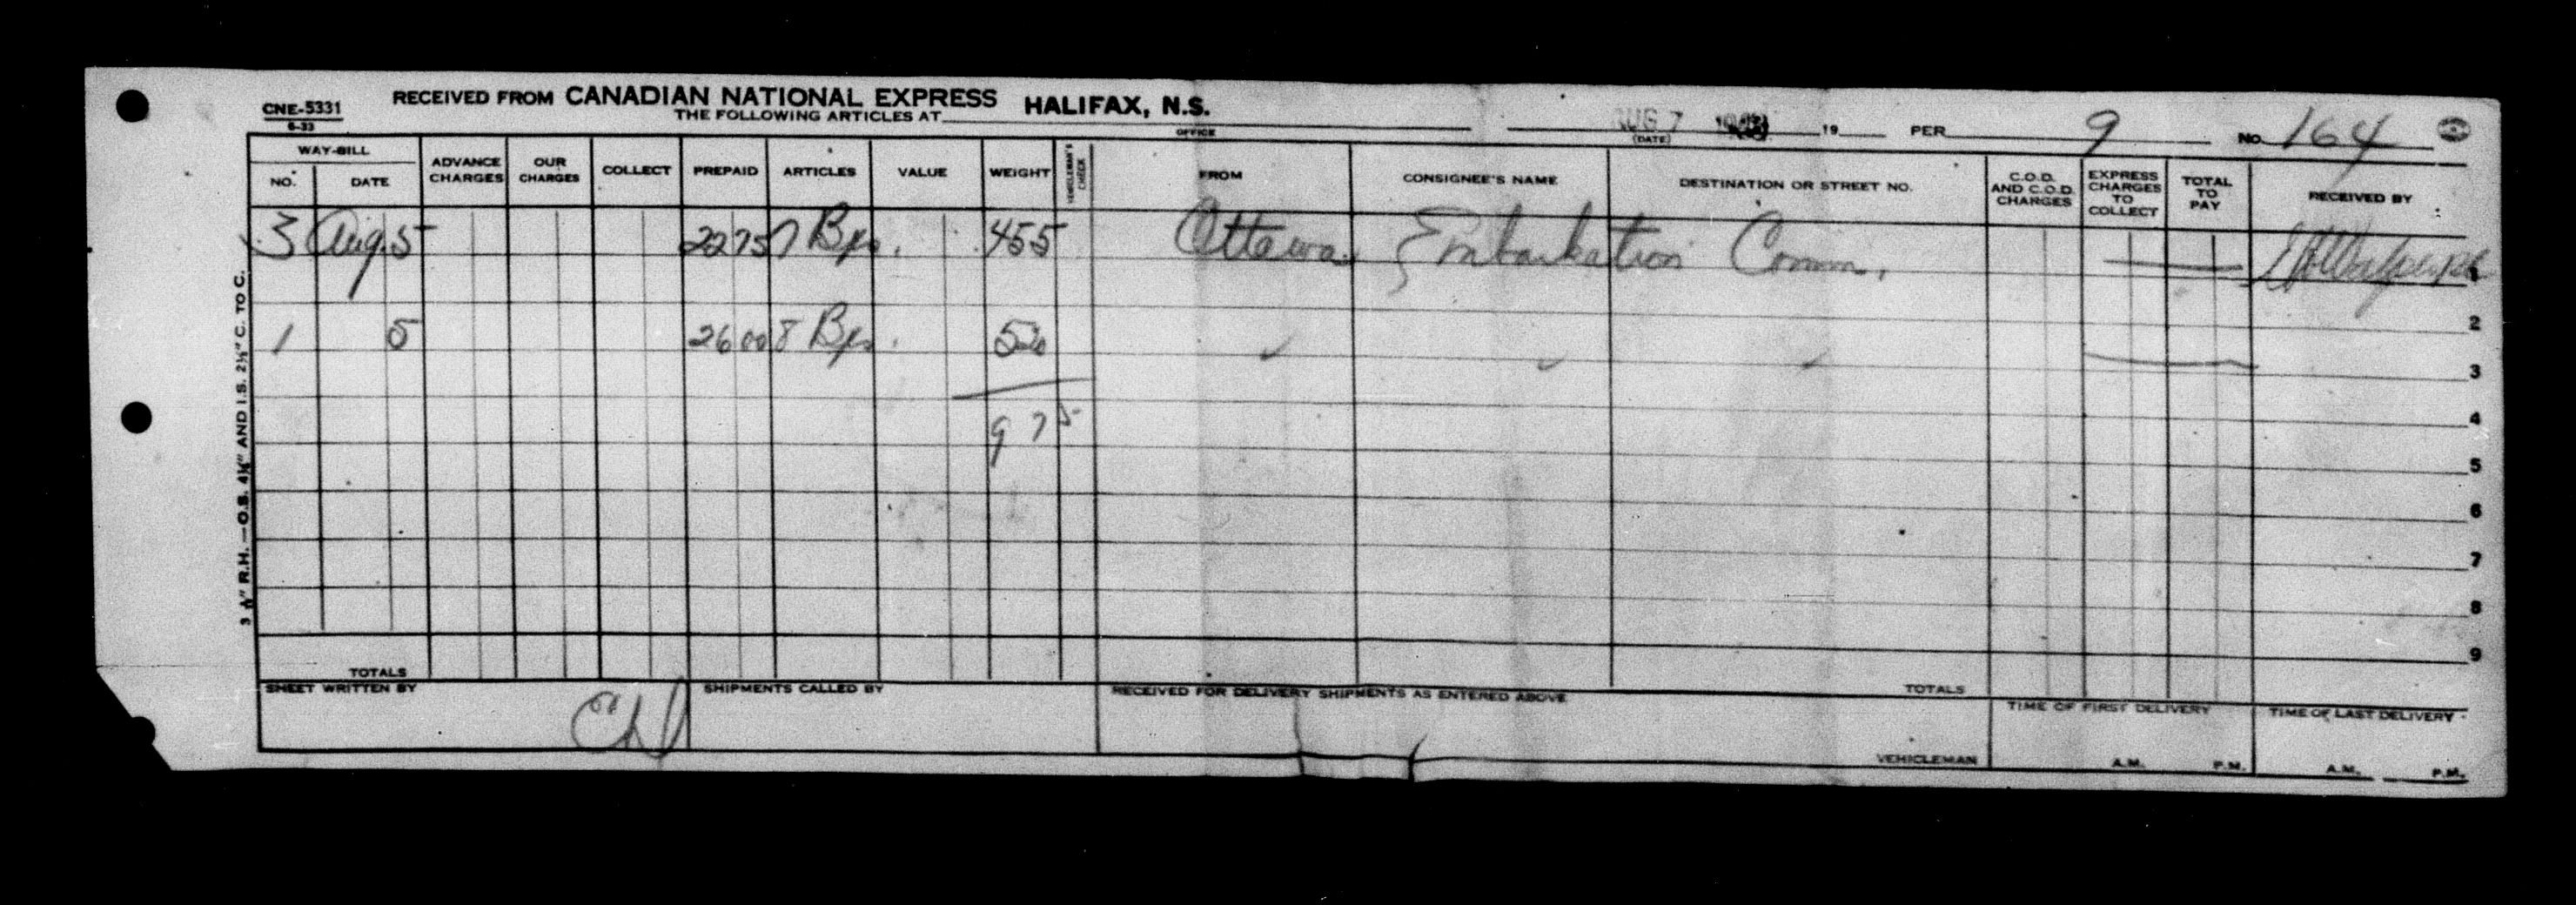 CNE-5331
6-33
RECEIVED FROM CANADIAN NATIONAL EXPRESS HALIFAX, N.S.
THE FOLLOWING ARTICLES AT
OFFICE
AUG 7
(DATE)
19
PER 9
No. 164
WAY-BILL
NO. DATE
ADVANCE CHARGES
OUR CHARGES
COLLECT
PREPAID
ARTICLES
VALUE
WEIGHT
VEHICLEMAN'S CHECK
FROM
CONSIGNEE'S NAME
DESTINATION OR STREET NO.
C.O.D. AND C.O.D. CHARGES
EXPRESS CHARGES TO COLLECT
TOTAL TO PAY
RECEIVED BY
3 Aug. 5 2275 7 Bxs. 455 Ottawa Embarkation Comm. 1
2
1 5 2600 8 Bxs. 520 3
975 4
5
6
7
8
9
TOTALS
TOTALS
SHEET WRITTEN BY
SHIPMENTS CALLED BY
RECEIVED FOR DELIVERY SHIPMENTS AS ENTERED ABOVE
VEHICLEMAN
TIME OF FIRST DELIVERY
A.M. P.M.
TIME OF LAST DELIVERY
A.M. P.M.